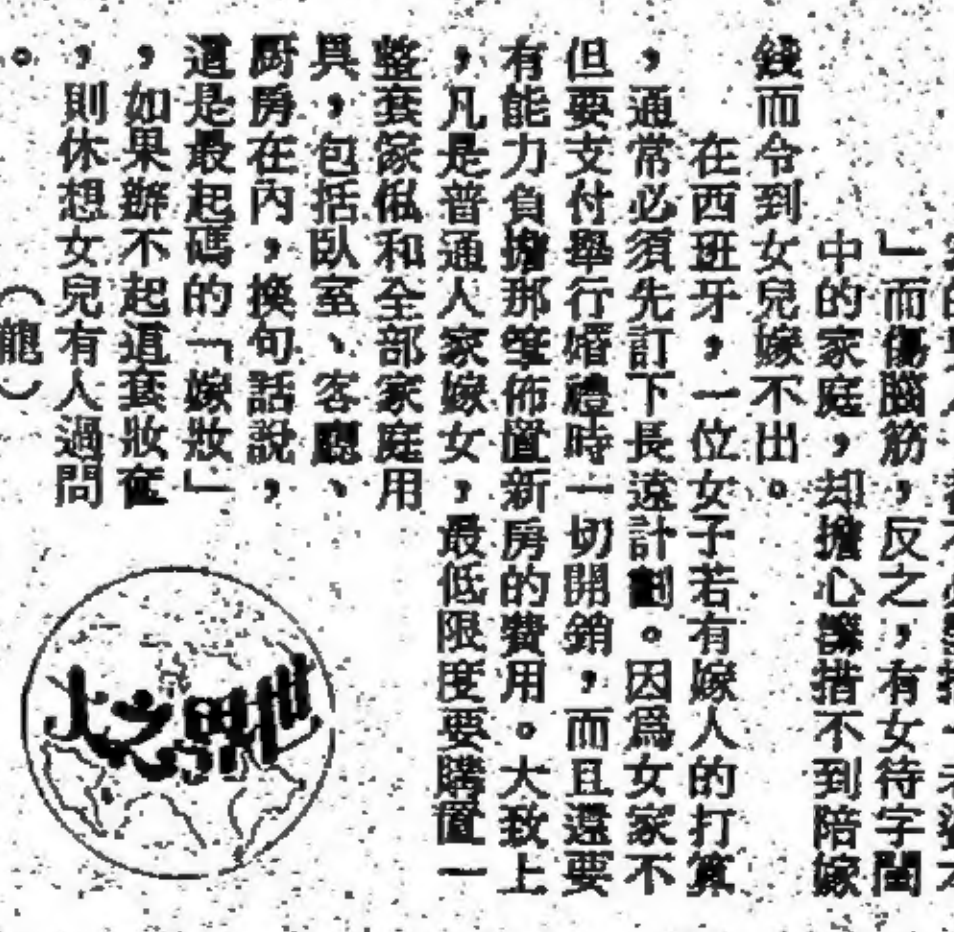 」而傷腦筋，反之，有女待字閨
中的家庭，却擔心籌措不到陪嫁
錢而令到女兒嫁不出。
在西班牙，一位女子若有嫁人的打算
，通常必須先訂下長遠計劃。因爲女家不
但要支付舉行婚禮時一切開銷，而且還要
有能力負擔那筆佈置新房的費用。大致上
，凡是普通人家嫁女，最低限度要購置一
整套傢俬和全部家庭用
具，包括臥室、客廳、
厨房在內，換句話說，
這是最起碼的「嫁妝」
，如果辦不起這套妝奩
，則休想女兒有人過問
。（龍）
世界之大